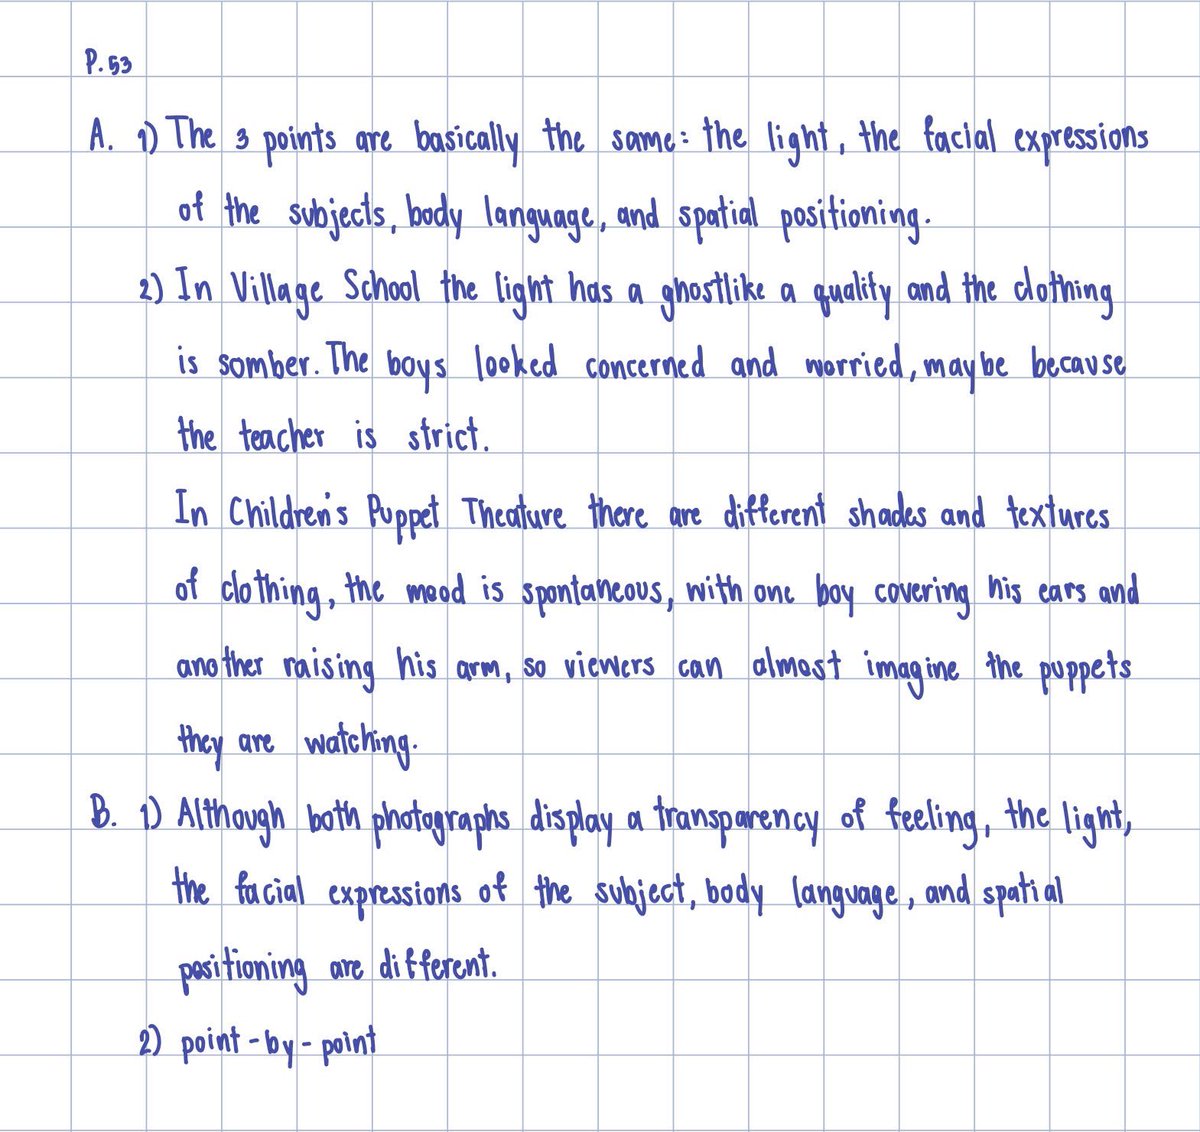 P. 53
A. 1) The 3 points are basically the same: the light, the facial expressions
of the subjects, body language, and spatial positioning.
2) In Village School the light has a ghostlike a quality and the clothing
is somber. The boys looked concerned and worried, maybe because
the teacher is strict.
In Children's Puppet Theature there are different shades and textures
of clothing, the mood is spontaneous, with one boy covering his ears and
another raising his arm, so viewers can almost imagine the puppets
they are watching.
B. 1) Although both photographs display a transparency of feeling, the light,
the facial expressions of the subject, body language, and spatial
positioning are different.
2) point-by-point